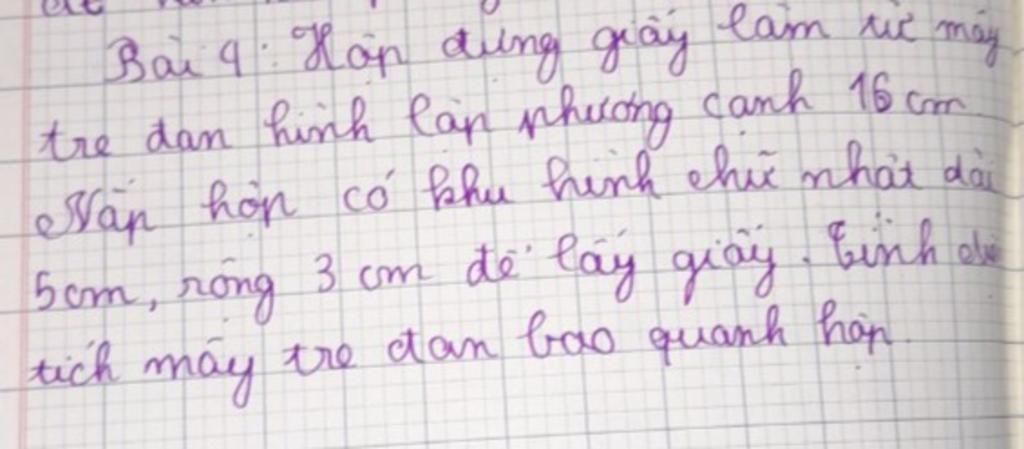 Bài 4: Hộp đựng giấy làm từ mây
tre đan hình lập phương cạnh 16 cm
Nắp hộp có khu hình chữ nhật dài
5cm, rộng 3 cm để lấy giấy. Tính
tích mây tre đan bao quanh hộp.